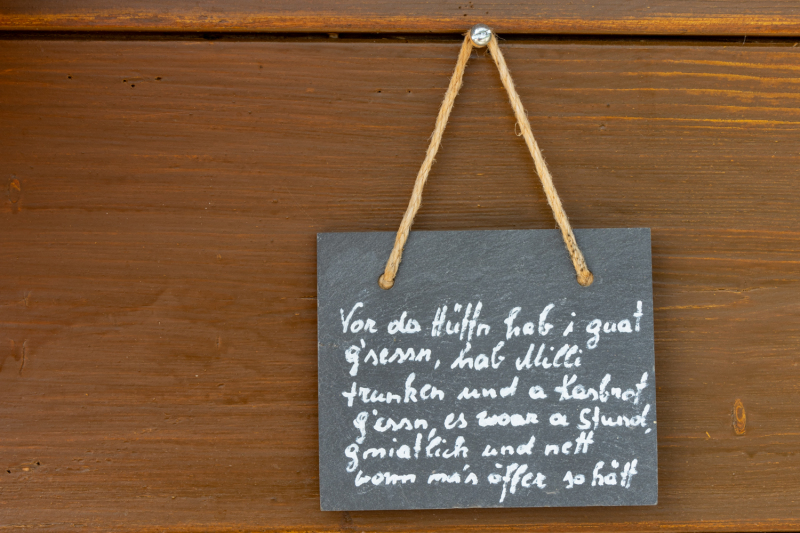 Vor da Hüttn hab i guat
g'sessn, hab Milli
trunken und a Kasbrot
g'essn, es woar a Stund,
gmiatlich und nett
wonn ma's öffer so hätt